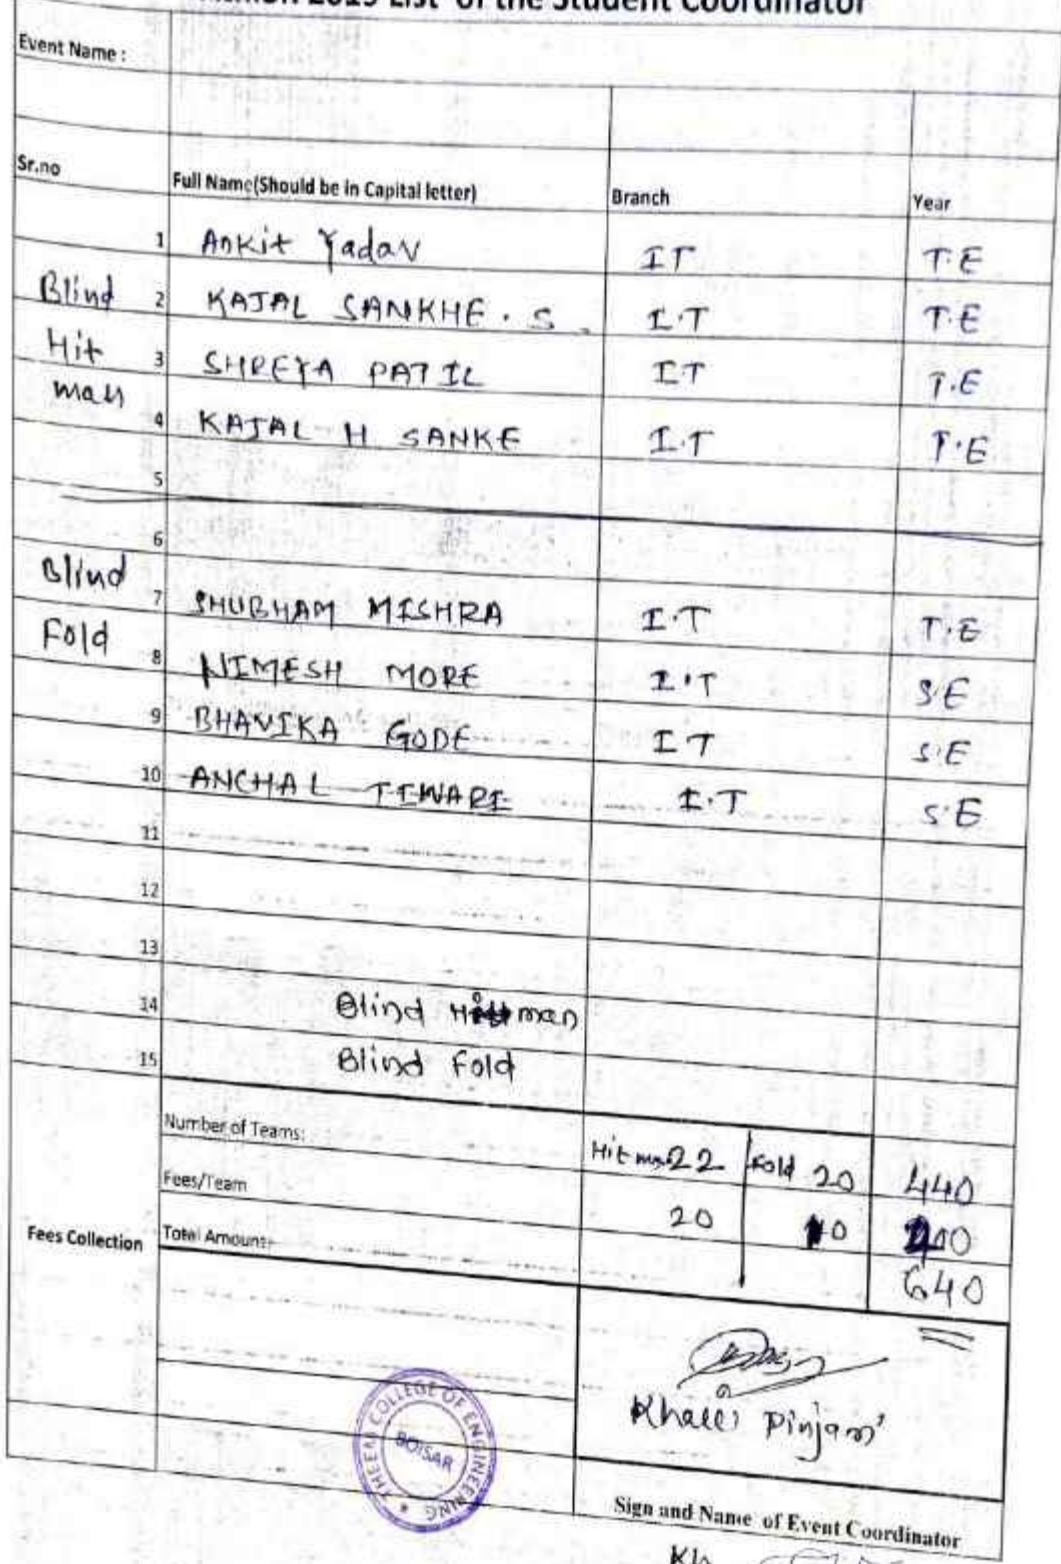 2019 List of the Student Coordinator
Event Name :
Sr.no Full Name(Should be in Capital letter) Branch Year
1 Ankit Yadav IT T.E
Blind 2 KAJAL SANKHE . S . I.T T.E
Hit 3 SHREYA PATIL IT T.E
man
4 KAJAL H SANKE I.T T.E
5
6
Blind
7 SHUBHAM MISHRA I.T T.E
Fold
8 NIMESH MORE I.T S.E
9 BHAVIKA GODE IT S.E
10 ANCHAL TIWARI I.T S.E
11
12
13
14 Blind Hitman
15 Blind Fold
Number of Teams: Hit man 22 Fold 20 440
Fees/Team 20 10 200
Fees Collection Total Amount: 640
Pinjari
THEEM COLLEGE OF ENGINEERING
BOISAR
Sign and Name of Event Coordinator
Kh